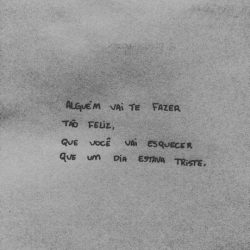 ALGUÉM VAI TE FAZER
TÃO FELIZ,
QUE VOCÊ VAI ESQUECER
QUE UM DIA ESTAVA TRISTE.